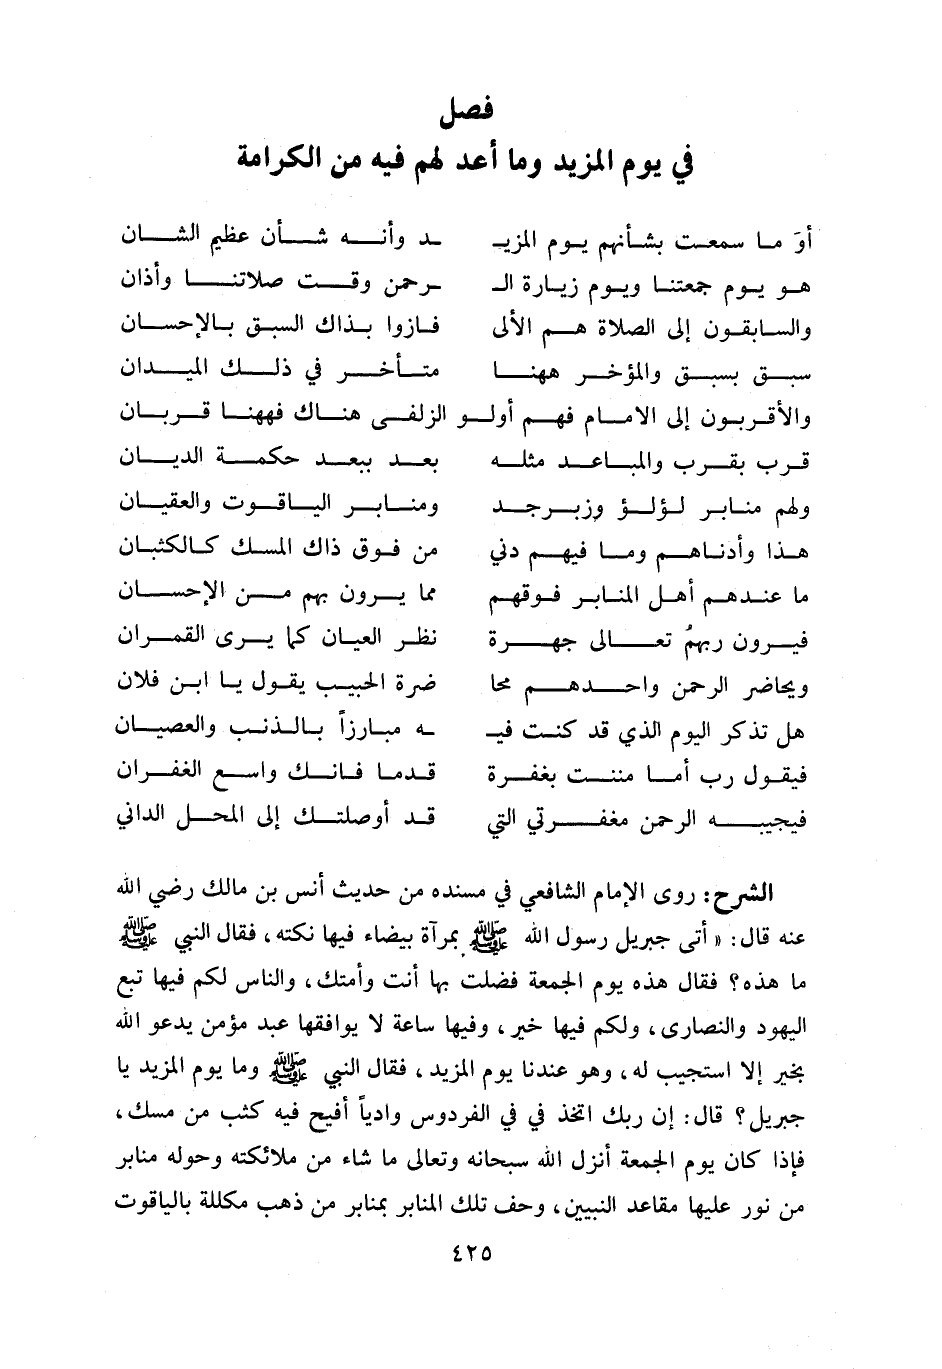 فصل
في يوم المزيد وما أعد لهم فيه من الكرامة
أوَ ما سمعت بشأنهم يوم المزيـ ـد وأنه شأن عظيم الشان
هو يوم جمعتنا ويوم زيارة الـ ـرحمن وقت صلاتنا وأذان
والسابقون إلى الصلاة هم الألى فازوا بذاك السبق بالإحسان
سبق بسبق والمؤخر ههنا متأخر في ذلك الميدان
والأقربون إلى الامام فهم أولو الزلفى هناك فههنا قربان
قرب بقرب والمباعد مثله بعد ببعد حكمة الديان
ولهم منابر لؤلؤ وزبرجد ومنابر الياقوت والعقيان
هذا وأدناهم وما فيهم دني من فوق ذاك المسك كالكثبان
ما عندهم أهل المنابر فوقهم مما يرون بهم من الإحسان
فيرون ربهمُ تعالى جهرة نظر العيان كما يرى القمران
ويحاضر الرحمن واحدهم محا ضرة الحبيب يقول يا ابن فلان
هل تذكر اليوم الذي قد كنت فيـ ـه مبارزاً بالذنب والعصيان
فيقول رب أما مننت بغفرة قدما فانك واسع الغفران
فيجيبه الرحمن مغفرتي التي قد أوصلتك إلى المحل الداني
الشرح: روى الإمام الشافعي في مسنده من حديث أنس بن مالك رضي الله
عنه قال: « أتى جبريل رسول الله ﷺ بمرآة بيضاء فيها نكته، فقال النبي ﷺ
ما هذه؟ فقال هذه يوم الجمعة فضلت بها أنت وأمتك، والناس لكم فيها تبع
اليهود والنصارى، ولكم فيها خير، وفيها ساعة لا يوافقها عبد مؤمن يدعو الله
بخير إلا استجيب له، وهو عندنا يوم المزيد، فقال النبي ﷺ وما يوم المزيد يا
جبريل؟ قال: إن ربك اتخذ في في الفردوس وادياً أفيح فيه كثب من مسك،
فإذا كان يوم الجمعة أنزل الله سبحانه وتعالى ما شاء من ملائكته وحوله منابر
من نور عليها مقاعد النبيين، وحف تلك المنابر بمنابر من ذهب مكللة بالياقوت
٤٢٥